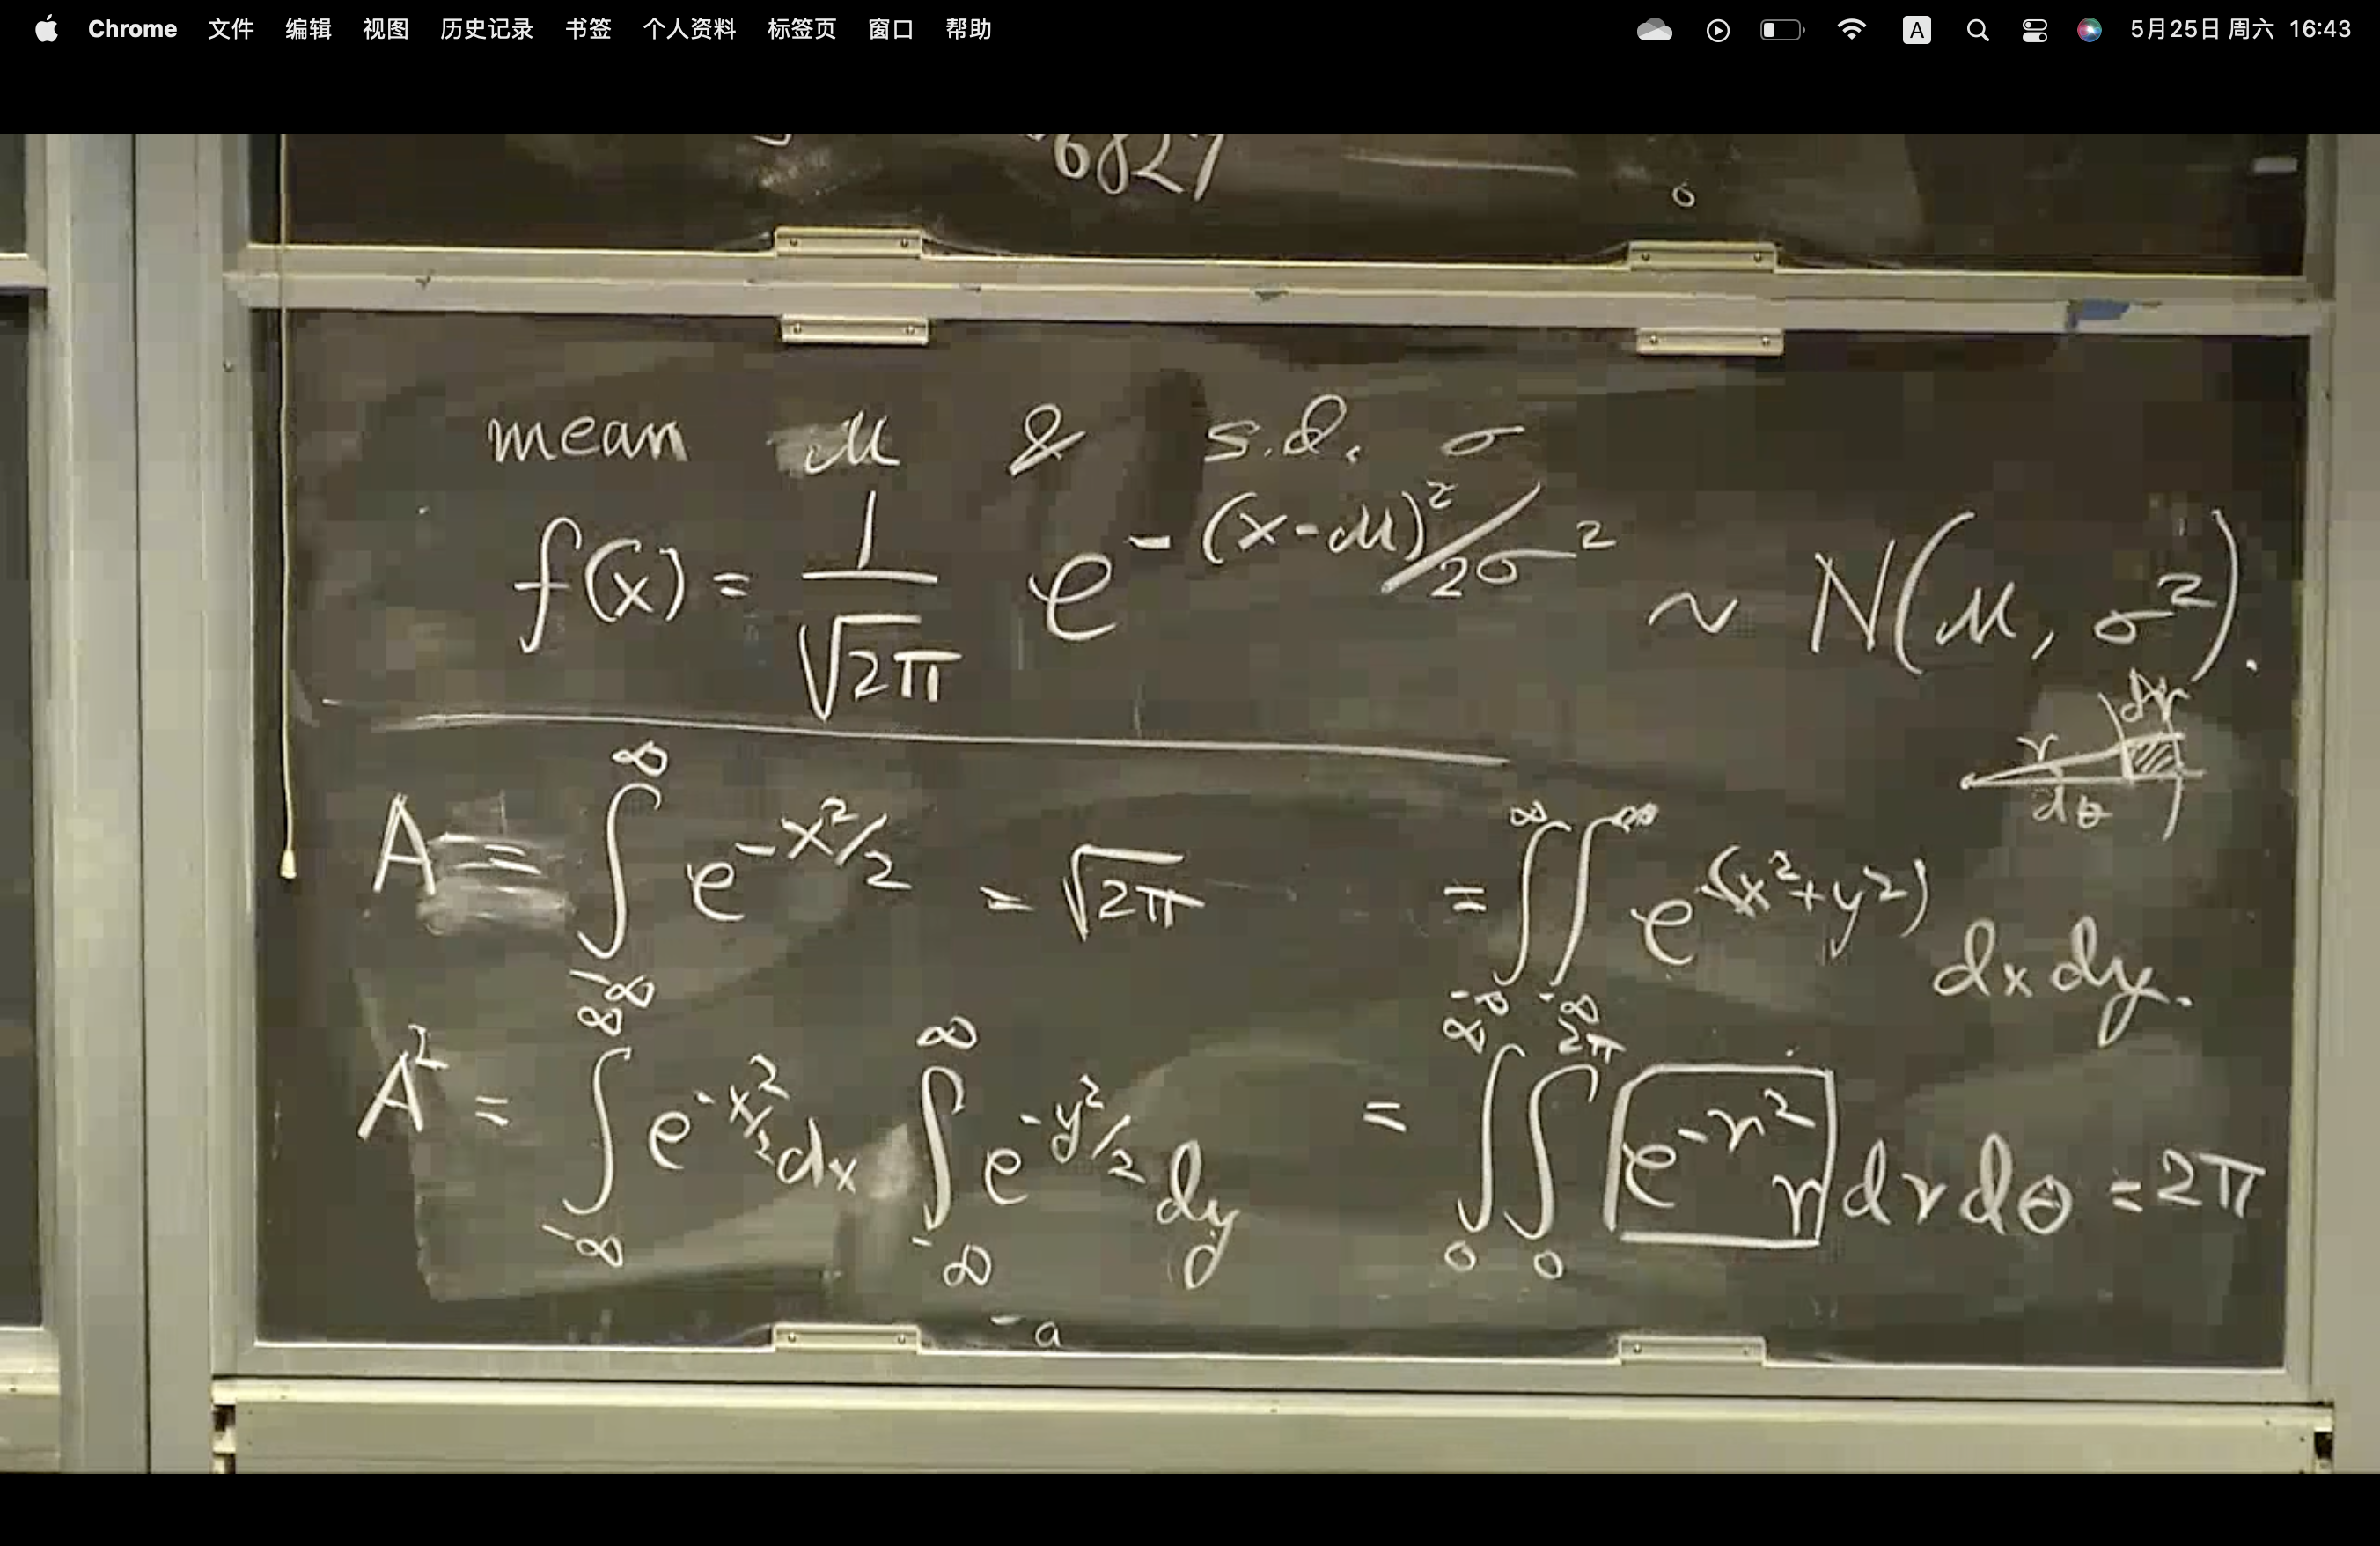 Chrome 文件 编辑 视图 历史记录 书签 个人资料 标签页 窗口 帮助 A 5月25日 周六 16:43
6827
mean μ & s.d. σ
f(x) = 1/√2π e^-(x-μ)²/2σ² ~ N(μ, σ²).
dr
r
dθ
A = ∫_-∞^∞ e^-x²/2 = √2π
= ∫_-∞^∞ ∫_-∞^∞ e^-(x²+y²) dx dy.
A² = ∫_-∞^∞ e^-x²/2 dx ∫_-∞^∞ e^-y²/2 dy
= ∫_0^∞ ∫_0^2π e^-r² r dr dθ = 2π
-a